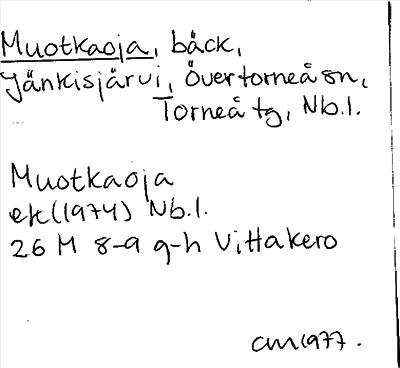 Muotkaoja, bäck,
Jänkisjärvi, Övertorneå sn,
Torneå tg, Nb.l.
Muotkaoja
ek (1974) Nb.l.
26 M 8-9 g-h Vittakero
CM 1977.